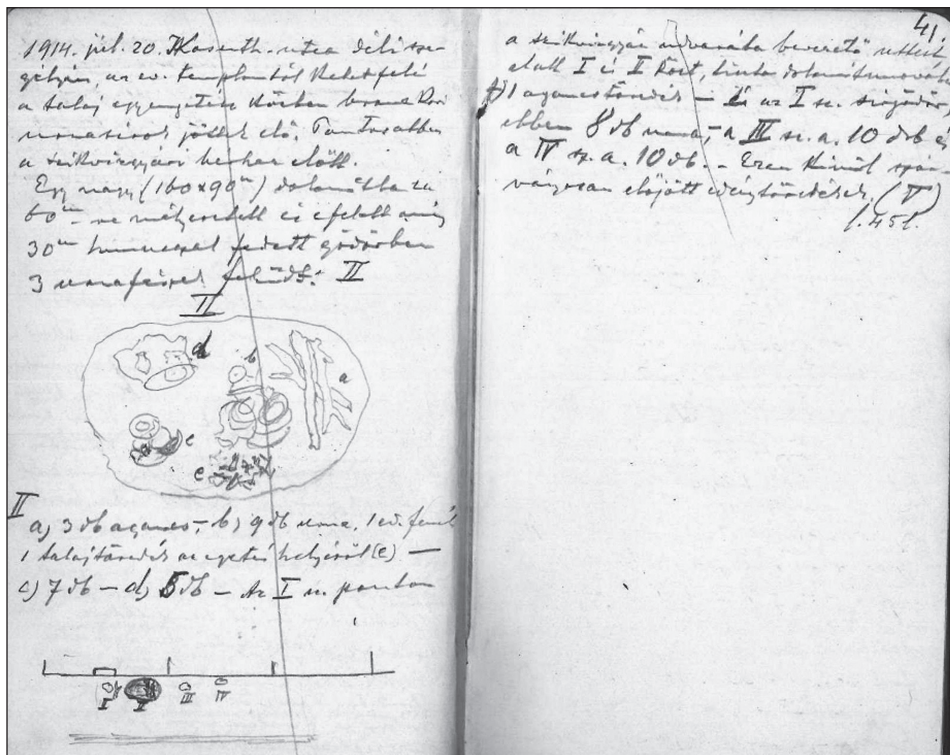 1914. júl. 20. Kossuth-utca déli sze-
gélyén, az ev. templomtól keletfelé
a talaj egyengetése közben bronzkori
urnasíros jöttek elő. Pontosabban
a szikvízgyári
Egy nagy (160x90 cm)
60 cm-re mélyesztett és efelett még
30 cm humusszal fedett gödörben
3 II
II
d
b
a
c
e
II
a) 3 db agancs, b) 9 db urna, 1 ed. fenék
1 talajtöredék az égetés helyéről (e) —
c) 7 db — d) 5 db — Az I sz. ponton
I II III IV
41.
a szikvízgyár udvarába bevezető
alatt I és II közt, tiszta
f) 1 agancstöredék — És az I sz.
ebben 8 db urna, a III sz. a. 10 db és
a IV sz. a. 10 db. — Ezen kívül szór-
ványosan előjött edénytöredékek (V)
l. 45 l.